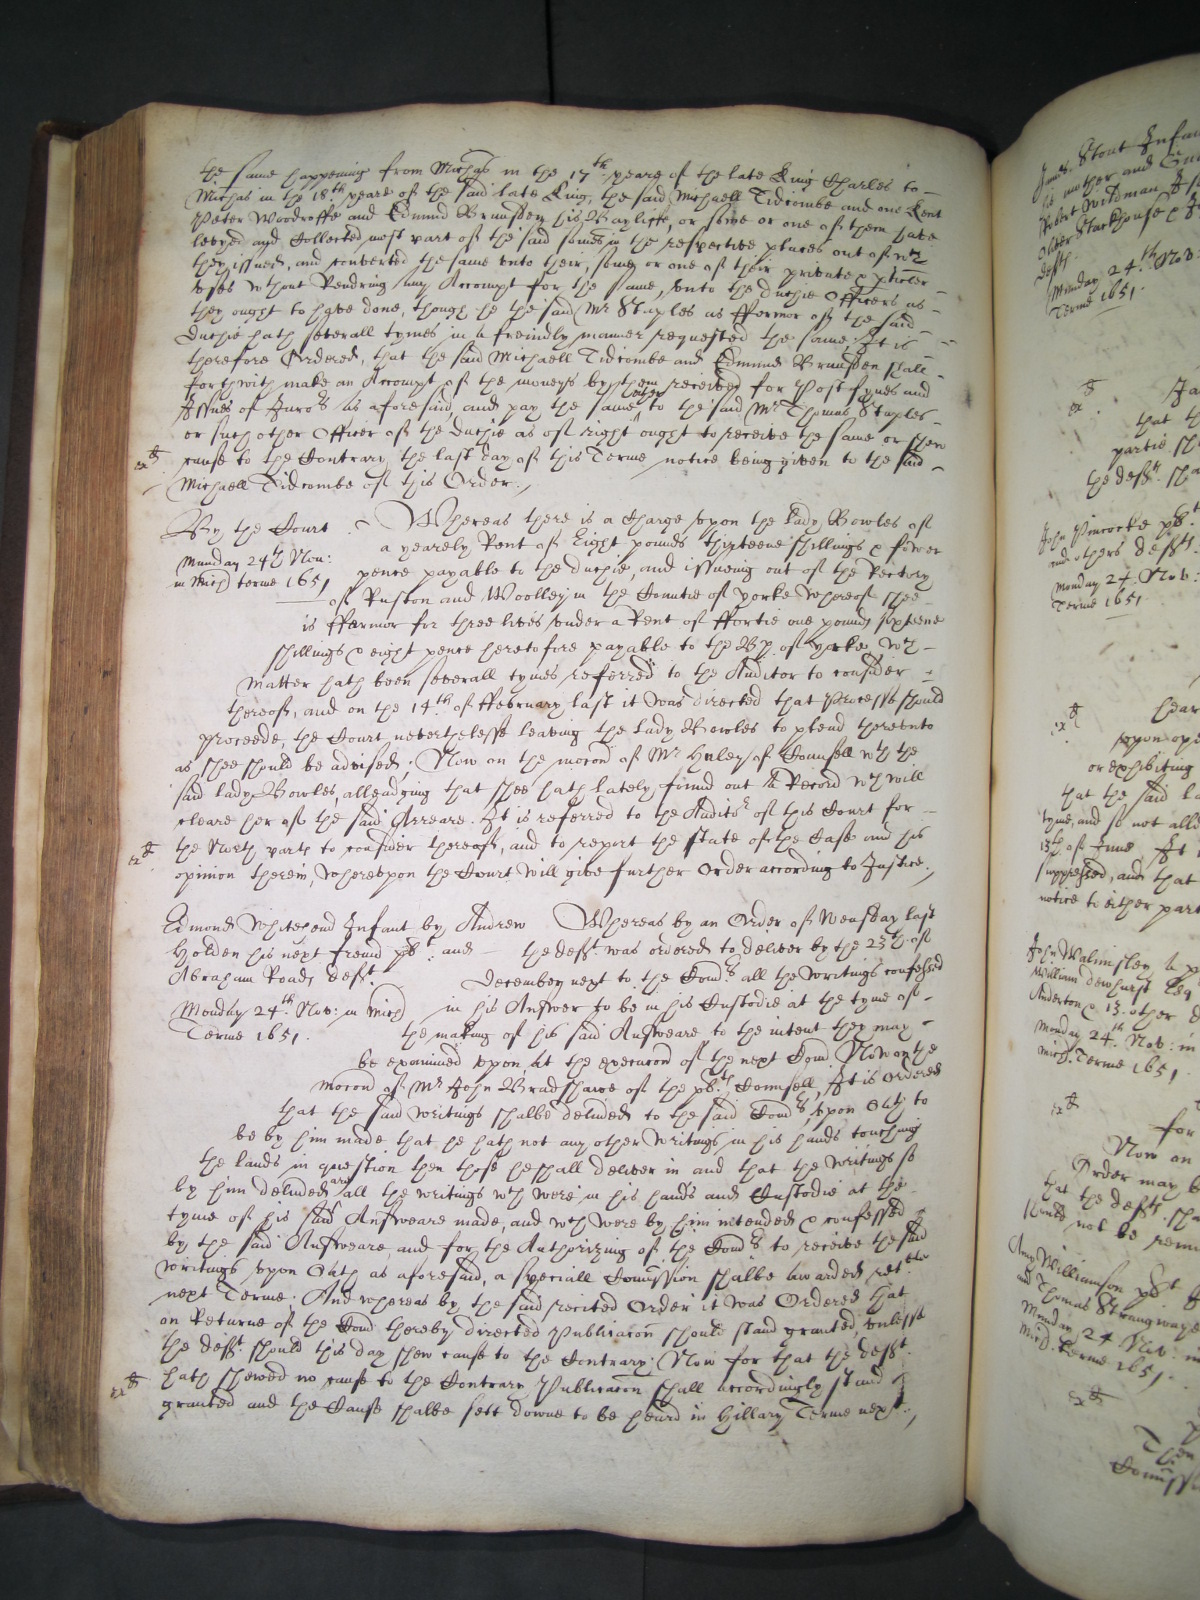 the same happening from Michãs in the 17th yeare of the late King Charles to
Michãs in the 18th yeare of the said late King, the said Michaell Tidcombe and one Kent
Peter Woodroffe and Edmund Brunsden his Bayliffe, or some or one of them have
levyed and Collected most part of the said somes in the respective places out of wch
they issued, and converted the same unto their, some or one of their private & pticler
uses wthout Rendring any Accompt for the same, unto the duchie Officers as
they ought to have done, though he the said Mr Staples as ffermor of the said
Duchie hath severall tymes in a freindly manner requested the same; It is
therefore Ordered, that the said Michaell Tidcombe and Edmund Brunsden shall
forthwith make an Accompt of the moneys by them received for Post fynes and
Issues of Juro:s as aforesaid, and pay the same, to the said Mr Thomas Staples
or such other Officer of the Duchie as of right ought to receive the same or shew
cause to the Contrary the last day of this Terme notice being given to the said
Michaell Tidcombe of this Order.
By the Court
Munday 24th Nov:
in Mich terme 1651
Whereas there is a Charge upon the Lady Bowles of
a yearely Rent of Eight pounds thirteene shillings & fower
pence payable to the duchie, and issueing out of the Rectory
of Ruston and Woolley in the Countie of Yorke whereof shee
is ffarmor for three lives under a Rent of ffortie one pounds sixteene
shillings & eight pence heretofore payable to the Bp. of Yorke, wch
matter hath been severall tymes referred to the Auditor to consider
thereof, and on the 14th of ffebruary last it was directed that Processe should
proceede, the Court neverthelesse leaving the Lady Bowles to plead thereunto
as shee should be advised. Now on the mocõn of Mr Hurley of Counsell wth the
said Lady Bowles, alleadging that shee hath lately found out a Record wch will
cleare her of the said Arreare. It is referred to the Auditr of this Court for
the North parts to consider thereof, and to report the state of the Case and his
opinion therein, whereupon the Court will give further Order according to Justice.
Edmond Whitehead Infant by Andrew
Holden his next freind pltt. and
Abraham Roads defft.
Monday 24th Nov: in Mich
Terme 1651.
Whereas by an Order of Weusday last
the defft was ordered to deliver by the 23th of
December next to the Comrs all the writings confessed
in his Answer to be in his Custodie at the tyme of
the making of his said Answeare to the intent they may
be examined upon, at the execucõn of the next Comõn Now on the
mocõn of Mr John Bradshawe of the pltts Counsell, It is ordered
that the said writings shalbe deliued to the said Comrs, upon Oath to
be by him made that he hath not any other writings in his hands touching
the lands in question then those he shall deliver in and that the writings so
by him deliued are all the writings wch were in his hands and Custodie at the
tyme of his said Answeare made, and wch were by him intended & confessed
by the said Answeare, and for the Authorizing of the Comrs to receive the said
writings upon Oath as aforesaid, a speciall Comission shalbe awarded ret.
next Terme. And whereas by the said recited Order it was Ordered that
on Returne of the Comõn thereby directed Publicacõn should stand granted, unlesse
the defft should this day shew cause to the Contrary; Now for that the defft
hath shewed no cause to the Contrary Publicacõn shall accordingly stand
granted and the Cause shalbe sett downe to be heard in Hillary Terme next.
James Stout Infan
Robert Wildman
Oliver Stackhouse
deffts
Munday 24th Nov:
Terme 1651.
that th
partie sh
the defft sha
John Pincocke pltt
and others deffts
Monday 24: Nov:
Terme 1651.
hear
upon ope
or exhibiting
that the said La
tyme, and so not all
13th of June
suppressed, and that
notice to either part
John Walmsley
William dewhurst
Anderton & 13 other
Monday 24th Nov: in
Mich: Terme 1651.
for
Now on
Order may b
that the deffts sha
should not be remo
Ann Williamson pltt
and Thomas Strangwayes
Munday 24 Nov: in
Mich: terme 1651.
Comissi